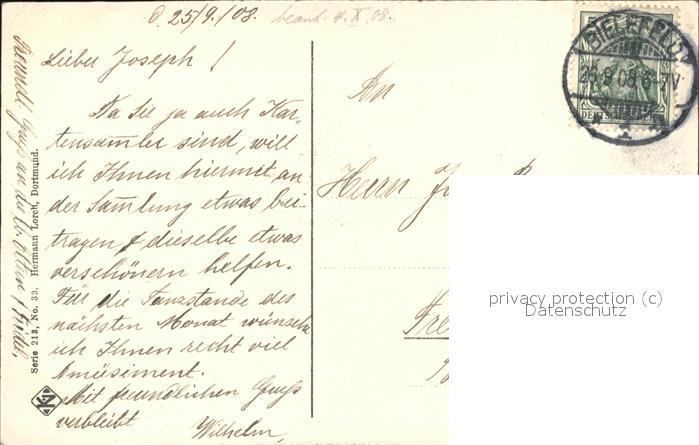 O. 25/9./08. beant. 4. X. 08.
Lieber Joseph!
Da Sie ja auch Kar-
tensammler sind, will
ich Ihnen hiermit an
der Samlung etwas bei-
tragen & dieselbe etwas
verschönern helfen.
Für die Tanzstunde des
nächsten Monat wünsche
ich Ihnen recht viel
Amüsiment.
Mit freundlichen Gruß
verbleibt
Wilhelm,
Freundl. Gruß an die lb. Eltern &
Serie 213, No. 33. Hermann Lorch, Dortmund.
An
Herrn
BIELEFELD
08 6-7V
DEUTSCHES REICH
privacy protection (c)
Datenschutz